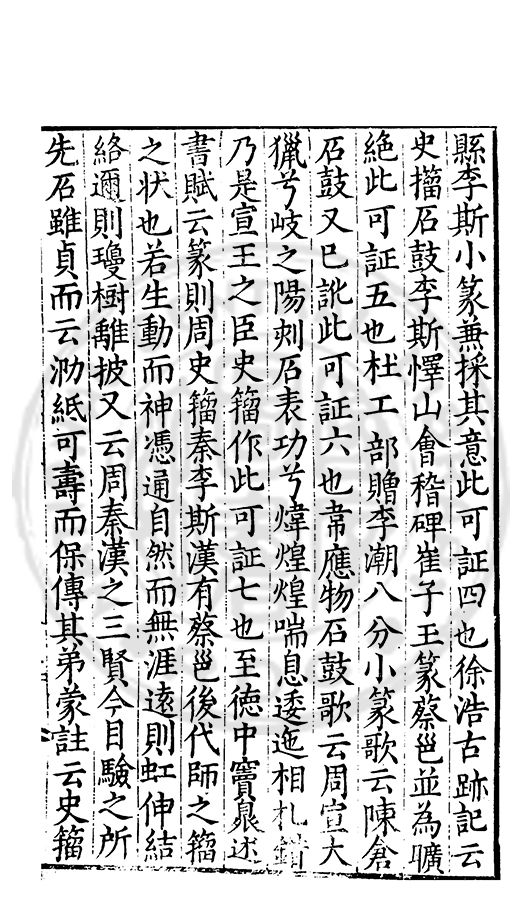 縣李斯小篆兼採其意此可証四也徐浩古跡記云
史擂石鼓李斯懌山會稽碑崔子王篆蔡邕並為曠
絶此可証五也杜工部贈李潮八分小篆歌云陳倉
石鼓又巳訛此可証六也韋應物石鼓歌云周宣大
獵兮岐之陽刻石表功兮煒煌煌喘息逶迤相糺錯
乃是宣王之臣史籀作此可証七也至德中竇臮述
書賦云篆則周史籀秦李斯漢有蔡邕後代師之籀
之状也若生動而神憑通自然而無涯遠則虹伸結
絡邇則瓊樹離披又云周秦漢之三賢今目驗之所
先石雖貞而云泐紙可壽而保傳其弟蒙註云史籀